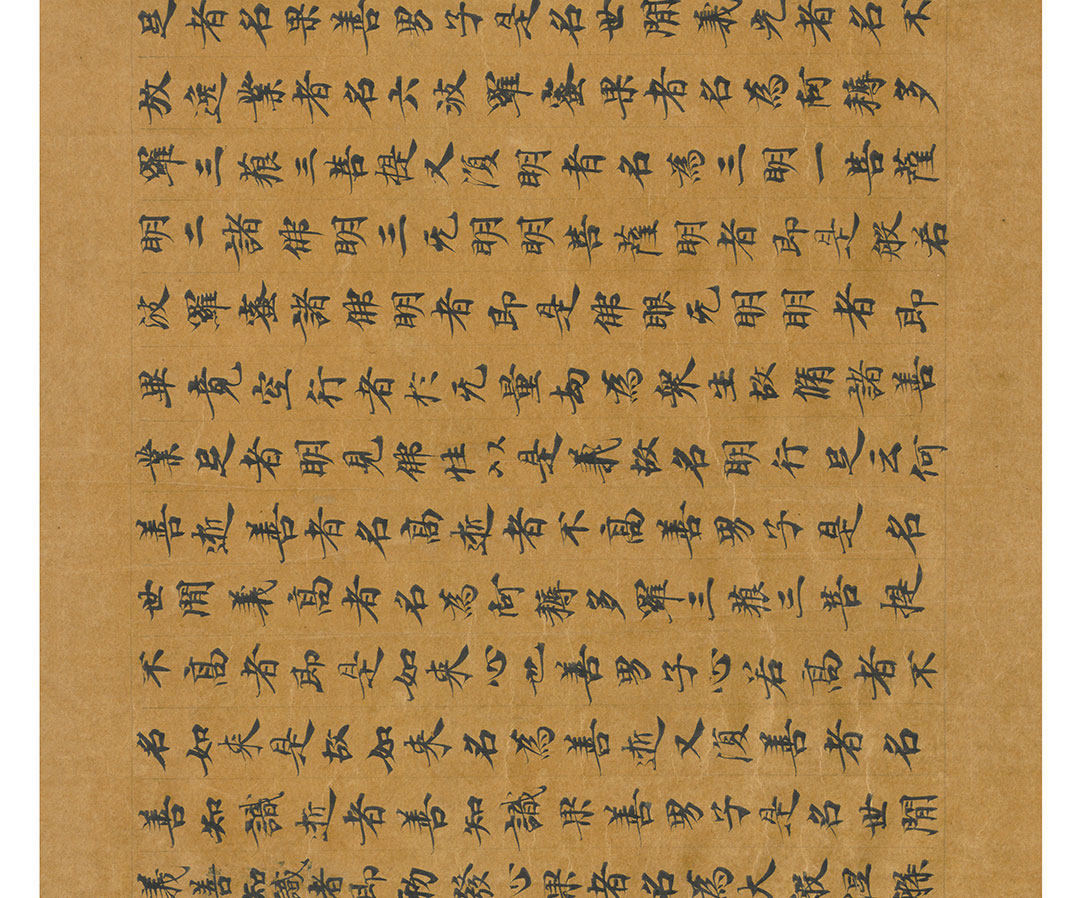 足者名果善男子是名世間義光者名不
放逸業者名六波羅蜜果者名為阿耨多
羅三藐三菩提又復明者名為三明一菩薩
明二諸佛明三无明明菩薩明者即是般若
波羅蜜諸佛明者即是佛眼无明明者即
畢竟空行者於无量劫為衆生故脩諸善
業足者明見佛性以是義故名明行足云何
善逝善者名高逝者不高善男子是名
世間義高者名為阿耨多羅三藐三菩提
不高者即是如来心也善男子心若高者不
名如来是故如来名為善逝又復善者名
善知識逝者善知識果善男子是名世間
義善知識者即初發心果者名為大般涅槃